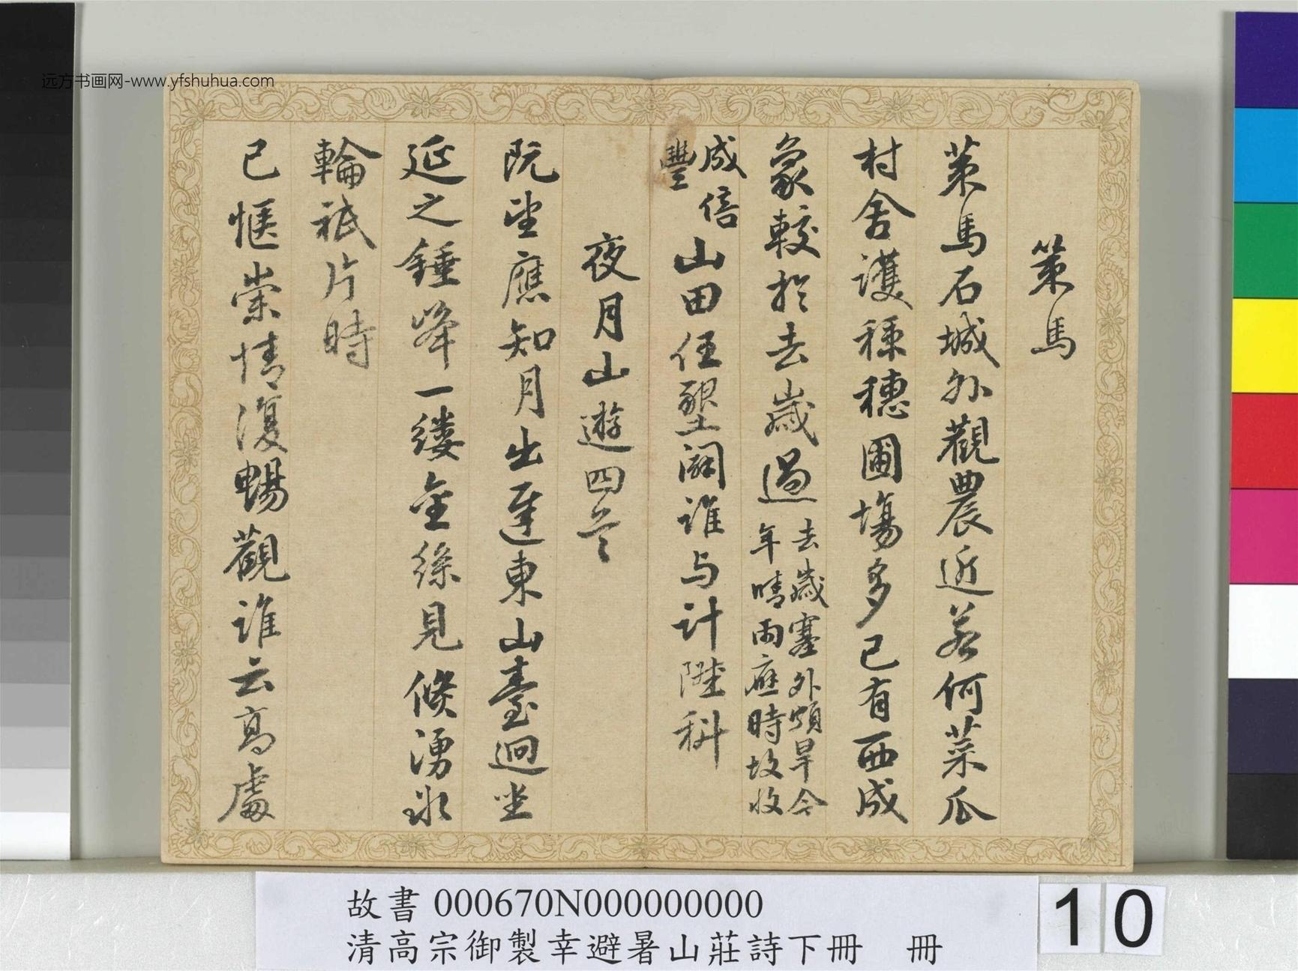 远方书画网-www.yfshuhua.com
策馬
策馬石城外觀農近若何菜瓜
村舍護穜穗圃場多已有西成
象較於去歲過去歲塞外頗旱今
年晴雨應時故收
成倍
豐
山田任墾闢誰与計陞科
夜月山遊四首
阮望應知月出遲東山臺迥坐
延之錘峰一縷金絲見倏湧冰
輪祇片時
已愜崇情復暢觀誰云高處
故書 000670N000000000
清高宗御製幸避暑山莊詩下冊 冊
10